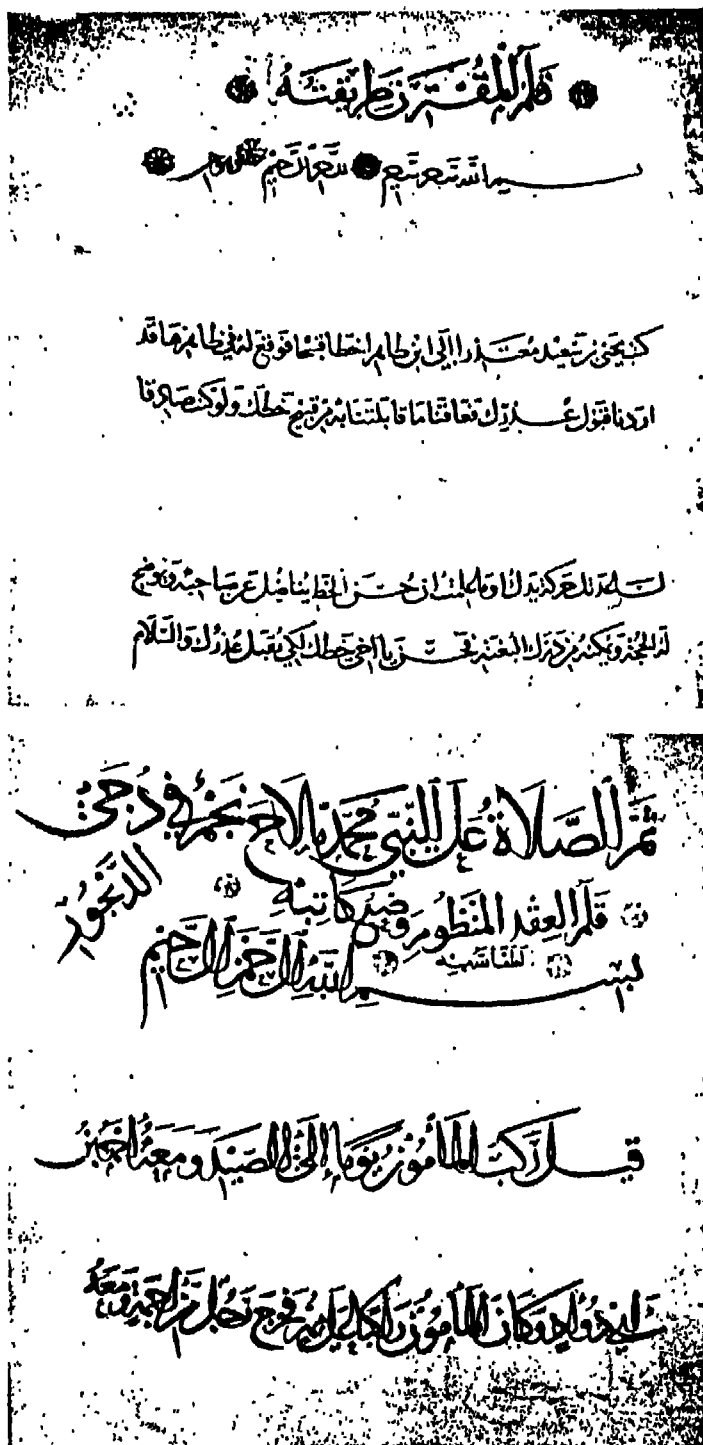 قلم المقترن طريقته
بسم الله
كتب يحيى بن سعيد معتذرا الى ابن طاهر اخطا قبيحا فوقع له في ظاهرها قد
اردنا قبول عذرك فعاقنا ما قابلتنا به من قبيح خطك ولو كنت صادقا
لساعدتك حركة يدك او ما علمت ان حسن الخط يناضل عن صاحبه ويوضح
له الحجة ويمكنه من درك البغية فحسن يا اخي خطك لكي يقبل عذرك والسلام
ثم الصلاة على النبي محمد ما لاح نجم في دجى
الديجور
قلم العقد المنظوم وضع كاتبه
بسم الله الرحمن الرحيم
قيل ركب المأمون يوما إلى الصيد ومعه احمد بن
ابي دؤاد وكان المأمون راكبا